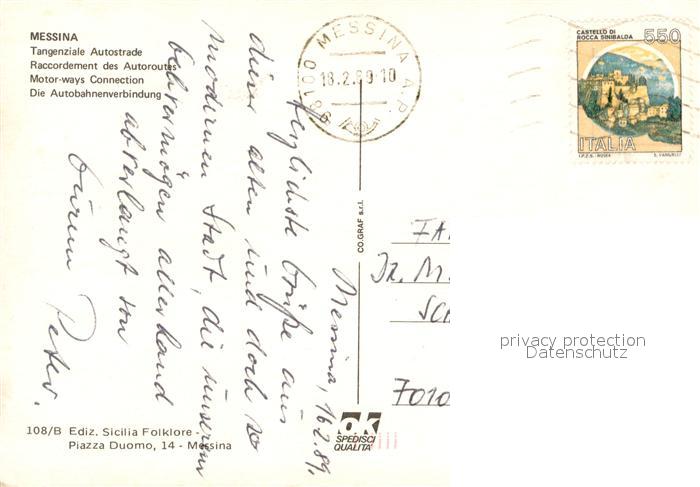 MESSINA
Tangenziale Autostrade
Raccordement des Autoroutes
Motor-ways Connection
Die Autobahnenverbindung
98100 MESSINA A.P.
18.2.89-10
CASTELLO DI
ROCCA SINIBALDA
550
ITALIA
I.P.Z.S. - ROMA
E. VANGELLI
Messina, 16.2.89.
Herzlichste Grüße aus
dieser alten und doch so
modernen Stadt, die unserem
Fahrvermögen allerhand
abverlangt von
Eurem Peter.
CO.GRAF s.r.l.
FA
DR. M.
SCH
7010
privacy protection
Datenschutz
ok
SPEDISCI
QUALITA'
108/B Ediz. Sicilia Folklore -
Piazza Duomo, 14 - Messina